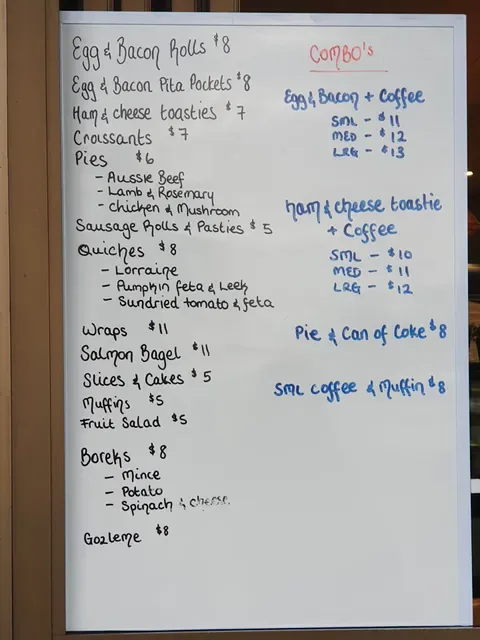 Egg & Bacon Rolls $8
Egg & Bacon Pita Pockets $8
Ham & cheese toasties $7
Croissants $7
Pies $6
- Aussie Beef
- Lamb & Rosemary
- Chicken & Mushroom
Sausage Rolls & Pasties $5
Quiches $8
- Lorraine
- Pumpkin feta & Leek
- Sundried tomato & feta
Wraps $11
Salmon Bagel $11
Slices & Cakes $5
Muffins $5
Fruit Salad $5
Boreks $8
- Mince
- Potato
- Spinach & cheese.
Gozleme $8
COMBO's
Egg & Bacon + Coffee
SML - $11
MED - $12
LRG - $13
Ham & cheese toastie
+ Coffee
SML - $10
MED - $11
LRG - $12
Pie & Can of Coke $8
SML Coffee & Muffin $8